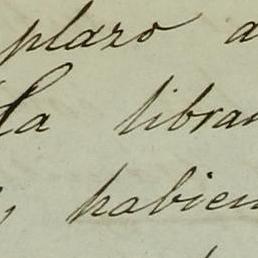 plazo a
la libran
habien